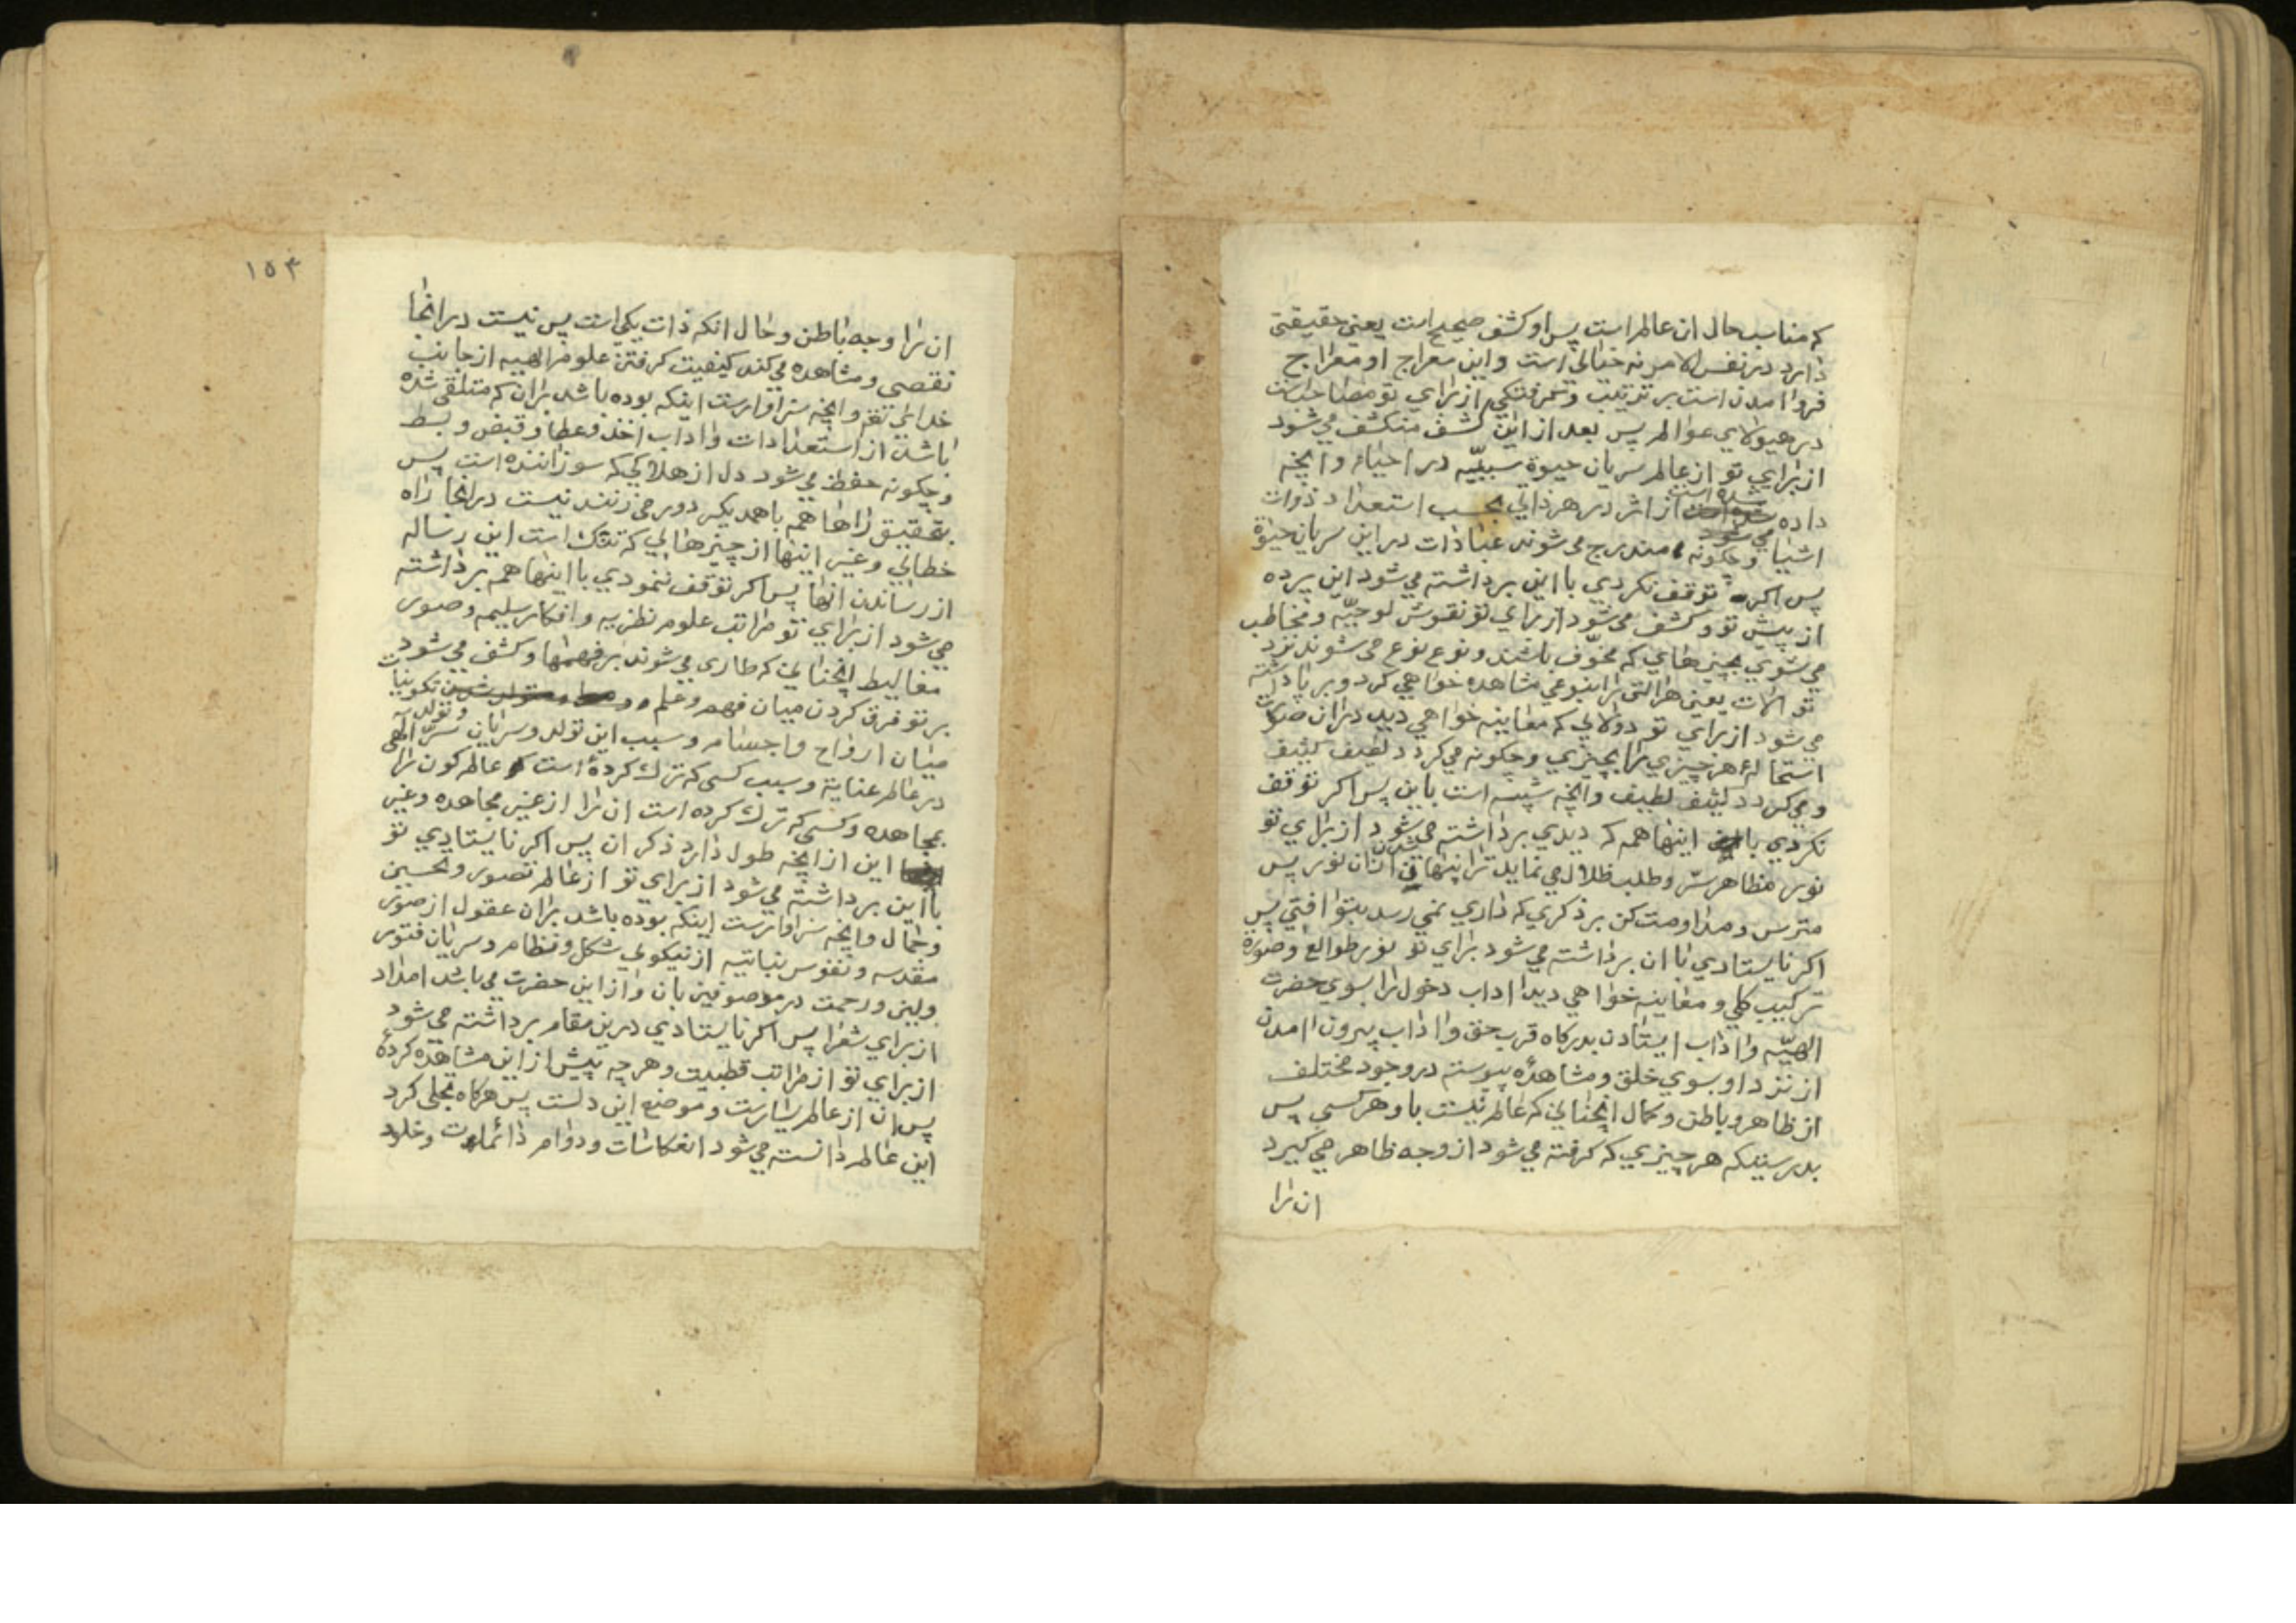 که مناسب حال ان عالم است پس او کشف صحیح است یعنی حقیقتی
دارد در نفس الامر نه خیالی است و این معراج او معراج
فروا امدن است بر ترتیب و گرفتگی از برای تو مصاحب است
در هیولای عوالم پس بعد از این کشف منکشف می شود
از برای تو از عالم سریان حیوة سببیّه در احیاء و انچه
داده شده است از اثر در هر ذاتی بحسب استعداد ذوات
اشیا و چکونه مندرج می شوند عبادات در این سریان حیوة
پس اکر توقف نکردی با این برداشته می شود این پرده
از پیش تو و کشف می شود از برای تو نقوش لوحیّه و مخاطب
می شوی بچیزهای که مخوّف باشند و نوع نوع می شوند نزد
تو الات یعنی هر التی را بنوعی مشاهده خواهی کرد و بر پا داشته
می شود از برای تو دولابی که معاینه خواهی دید در ان صورت
استحالهٔ هر چیزی را بچیزی و چکونه می کردد لطیف کثیف
و می کردد کثیف لطیف و انچه شبیه است باین پس اکر توقف
نکردی با اینها همه که دیدی برداشته می شود از برای تو
نور مظاهر ستر و طلب ظلال می نماید ترا پنهان شدن از ان نور پس
مترس و مداومت کن بر ذکری که داری نمی رسد بتو افتی پس
اکر نایستادی با ان برداشته می شود برای تو نور طوالع و صورة
ترکیب کلی و معاینه خواهی دید اداب دخول را بسوی حضرت
الهیّه و اداب ایستادن بدرکاه قرب حق و اداب بیرون امدن
از نزد او بسوی خلق و مشاهدهٔ پیوسته در وجود مختلف
از ظاهر و باطن و کمال انچنانی که عالم نیست باو هر کسی پس
بدرستیکه هر چیزی که کرفته می شود از وجه ظاهر می کیرد
ان را
۱۵۴
ان را وجه باطن و حال انکه ذات یکی است پس نیست در انجا
نقصی و مشاهده می کند کیفیت کرفتن علوم الهیه از جانب
خدای تعم و انچه سزاوارست اینکه بوده باشد بران که متلقی شده
باشد از استعدادات و اداب اخذ و عطا و قبض و بسط
و چکونه حفظ می شود دل از هلاکی که سوزاننده است پس
بتحقیق راهها همه با همدیکر دور می زنند نیست در انجا راه
خطایی و غیر اینها از چیزهایی که تنک است این رساله
از رساندن انها پس اکر توقف ننمودی با اینها همه برداشته
می شود از برای تو مراتب علوم نظریه و افکار سلیمه و صور
مغالیط انچنانی که طاری می شوند بر فهمها و کشف می شود
بر تو فرق کردن میان فهم و علم و تولد تکوینات
میان ارواح و اجسام و سبب این تولد و سریان سرّ الهی
در عالم عنایة و سبب کسی که ترک کرده است عالم کون را
بمجاهده و کسی که ترک کرده است ان را از غیر مجاهده و غیر
این از انچه طول دارد ذکر ان پس اکر نایستادی تو
با این برداشته می شود از برای تو از عالم تصویر و تحسین
و جمال و انچه سزاوارست اینکه بوده باشد بران عقول از صور
مقدسه و نفوس نباتیه از نیکویی شکل و نظام و سریان فتور
ولین و رحمت در موصوفین بان و از این حضرت می باشد امداد
از برای شعرا پس اکر نایستادی درین مقام برداشته می شود
از برای تو از مراتب قطبیت و هر چه پیش از این مشاهده کردهٔ
پس ان از عالم یسارست و موضع این دلست پس هرکاه تجلی کرد
این عالم دانسته می شود انعکاسات و دوام دائمات و خلود